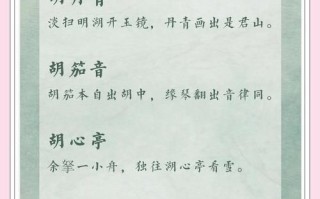 淡扫明湖开玉镜，丹青画出是君山。
胡笳音
胡笳本自出胡中，缘琴翻出音律同。
胡心亭
余拏一小舟，独往湖心亭看雪。